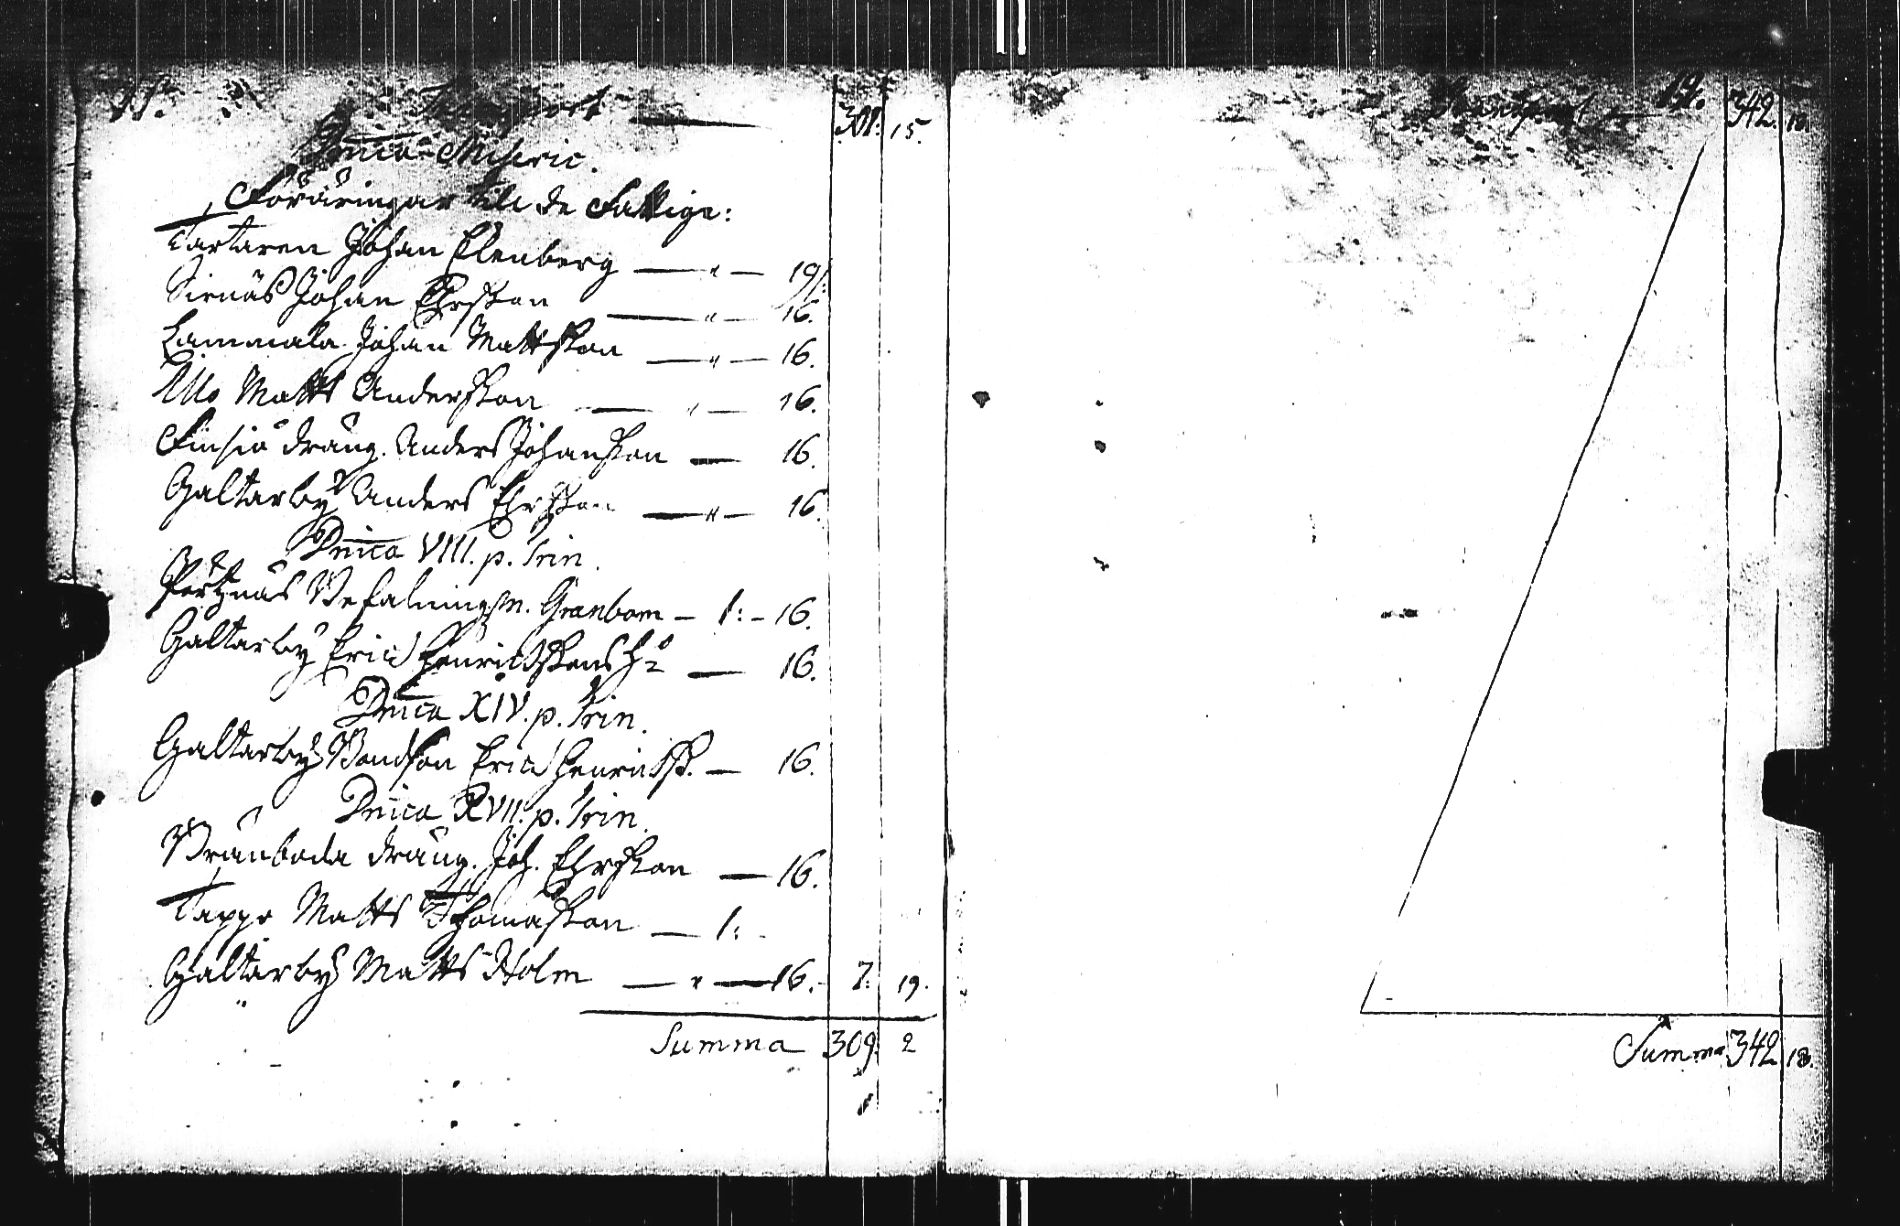 Transport 301: 15.
Dnica Miseric.
Föräringar till de Fattige:
Tartaren Johan Elenberg — " — 19:
Sirnäs Johan Ehrsson — " — 16.
Lammala Johan Mattsson — " — 16.
Ölmo Matts Andersson — " — 16.
Finsiö dräng. Anders Johansson — 16.
Galtarby Anders Ehrsson — " — 16.
Dnica VIII. p. Trin.
Pertnäs Befalningsm. Granbom — 1: — 16.
Galtarby Eric Henricssons H — 16.
Dnica XIV. p. Trin.
Galtarby Bondson Eric Henricss. — 16.
Dnica XVII. p. Trin.
Bränboda dräng. Joh. Ehrsson — 16.
Tappo Matts Thomasson — 1: -
Galtarby Matts Holm — " — 16. 7: 19.
Summa 309: 2
Transport 12. 342. 18.
Summa 342 18.